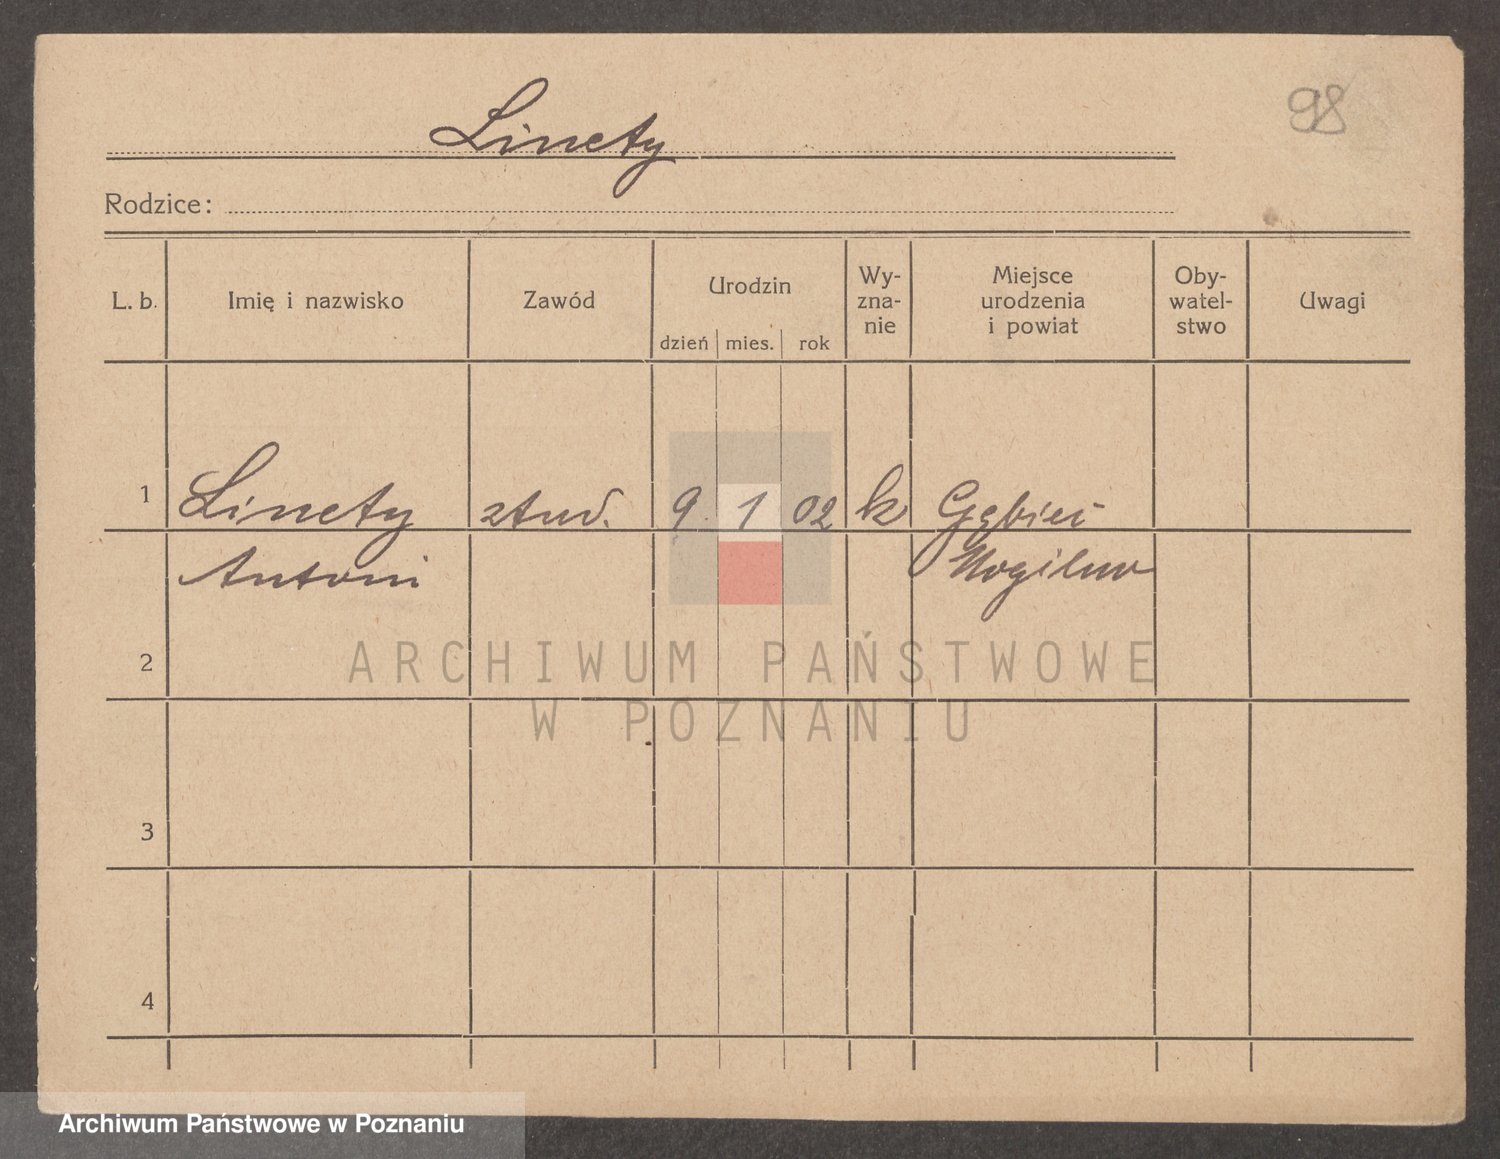 98
Linety
Rodzice:
L. b. Imię i nazwisko Zawód Urodzin Wy- Miejsce Oby- Uwagi
zna- urodzenia watel-
nie i powiat stwo
dzień mies. rok
1 Linety stud. 9. 1 02 k Gębice
Antoni Mogilno
2
ARCHIWUM PAŃSTWOWE
W POZNANIU
3
4
Archiwum Państwowe w Poznaniu